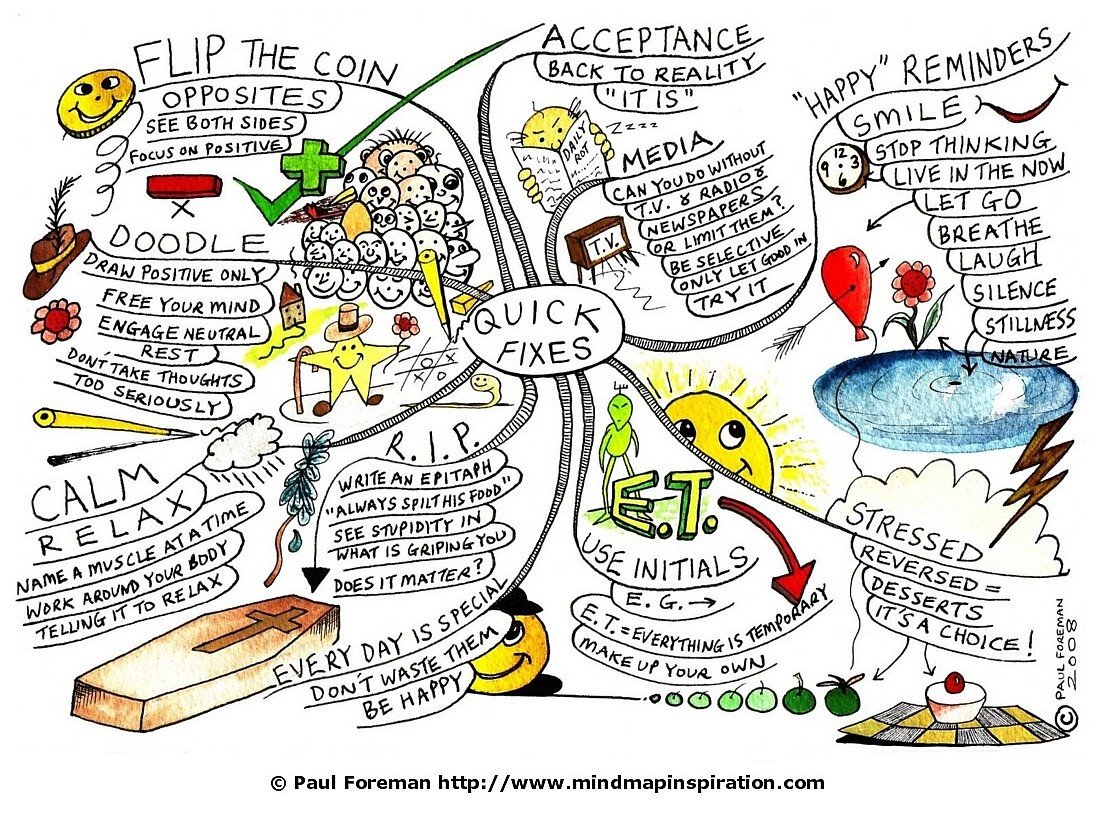 FLIP THE COIN
OPPOSITES
SEE BOTH SIDES
FOCUS ON POSITIVE
ACCEPTANCE
BACK TO REALITY
"IT IS"
DAILY
ROT
ZZZZ
MEDIA
CAN YOU DO WITHOUT
T.V. & RADIO &
NEWSPAPERS
OR LIMIT THEM?
BE SELECTIVE
ONLY LET GOOD IN
TRY IT
T.V.
"HAPPY" REMINDERS
SMILE
STOP THINKING
LIVE IN THE NOW
LET GO
BREATHE
LAUGH
SILENCE
STILLNESS
NATURE
12
3
6
9
DOODLE
DRAW POSITIVE ONLY
FREE YOUR MIND
ENGAGE NEUTRAL
REST
DON'T TAKE THOUGHTS
TOO SERIOUSLY
QUICK
FIXES
CALM
RELAX
NAME A MUSCLE AT A TIME
WORK AROUND YOUR BODY
TELLING IT TO RELAX
R.I.P.
WRITE AN EPITAPH
"ALWAYS SPILT HIS FOOD"
SEE STUPIDITY IN
WHAT IS GRIPING YOU
DOES IT MATTER?
EVERY DAY IS SPECIAL
DON'T WASTE THEM
BE HAPPY
E.T.
USE INITIALS
E.G. →
E.T. = EVERYTHING IS TEMPORARY
MAKE UP YOUR OWN
STRESSED
REVERSED =
DESSERTS
IT'S A CHOICE!
© PAUL FOREMAN
2008
© Paul Foreman http://www.mindmapinspiration.com